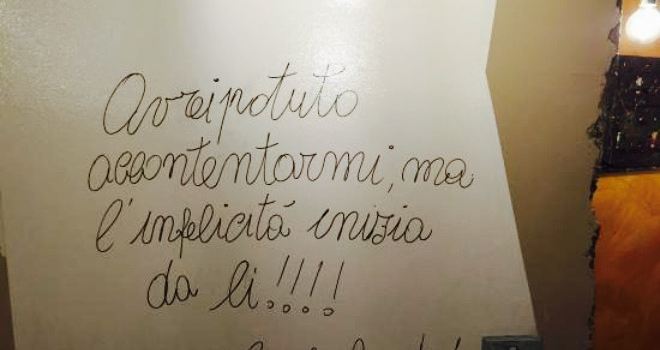 Avrei potuto
accontentarmi, ma
l'infelicitá inizia
da li!!!!